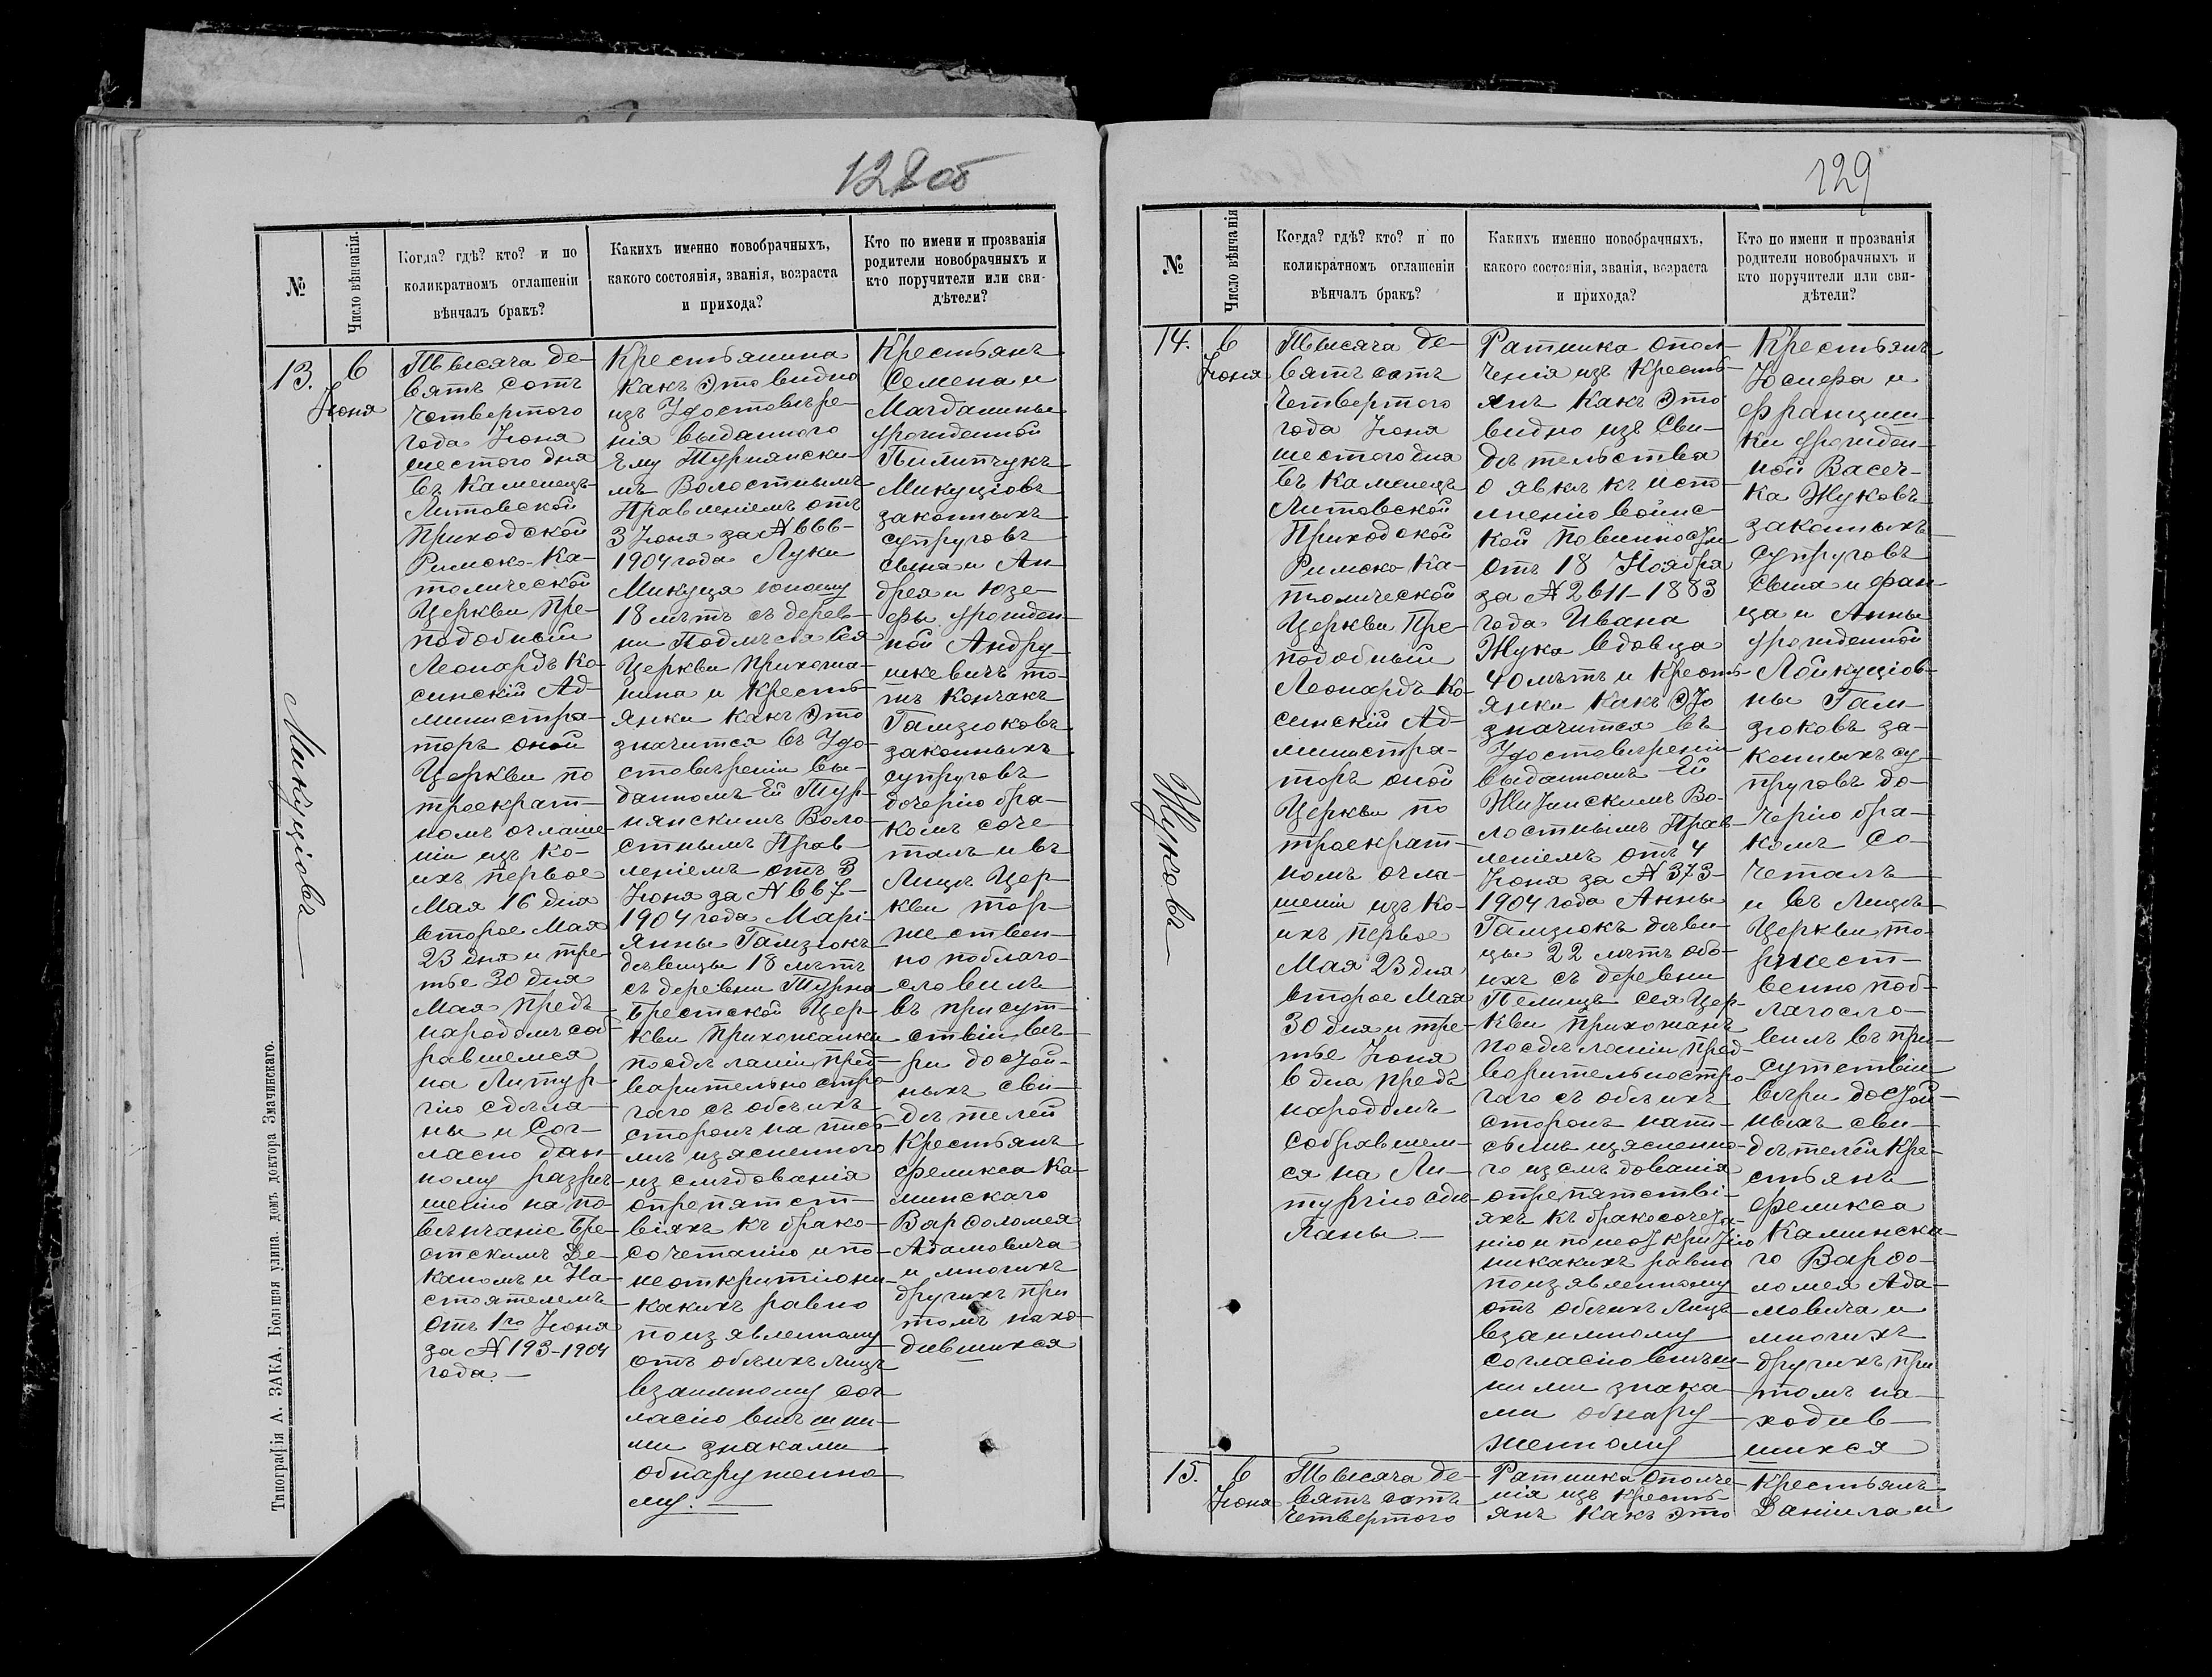 128 об
№
Число вѣнчанія.
Когда? гдѣ? кто? и по
коликратномъ оглашеніи
вѣнчалъ бракъ?
Какихъ именно новобрачныхъ,
какого состоянія, званія, возраста
и прихода?
Кто по имени и прозванія
родители новобрачныхъ и
кто поручители или сви-
дѣтели?
13.
6
Іюня
Микуціовъ
Тысяча де-
вятъ сотъ
Четвертого
года Іюня
шестого дня
въ Каменецъ
Литовской
Приходской
Римско-Ка-
толической
Церкви Пре-
подобный
Леонардъ Ко-
синскій Ад-
министра-
торъ оной
Церкви по
троекрат-
номъ оглаше-
ніи изъ ко-
ихъ первое
Мая 16 дня
второе Мая
23 дня и тре-
тье 30 дня
Мая предъ
народомъ соб-
равшемся
на Литур-
гію сдѣла-
ны и Сог-
ласно дан-
ному разрѣ-
шенію на по-
вѣнчаніе Бре-
стскимъ Де-
каномъ и На-
стоятелемъ
отъ 1го Іюня
за № 193-1904
года.—
Крестьянина
какъ это видно
изъ Удостовѣре-
нія выданного
Ему Турнянски-
мъ Волостнымъ
Правленіемъ отъ
3 Іюня за № 666-
1904 года Луки
Микуця юношу
18 лѣтъ съ дерев-
ни Подлѣсія Сея
Церкви Прихожа-
нина и Кресть-
янки Какъ Это
значится въ Удо-
стовѣреніи вы-
данномъ Ей Тур-
нянскимъ Воло-
стнымъ Прав-
леніемъ отъ 3
Іюня за № 667-
1904 года Марі-
янны Гамзюкъ
дѣвицы 18 лѣтъ
съ деревни Турна
Брестской Цер-
кви Прихожанки
посдѣланіи пред-
варительно стро-
гаго съ обѣихъ
сторонъ на пись-
мѣ изясненного
изслѣдованія
опрепятст-
віяхъ къ брако-
сочетанію и по-
неоткрытію ни-
какихъ равно
поизявленному
отъ обѣихъ лицъ
взаимному сог-
ласію внѣшни-
ми знаками
обнаруженно-
му.—
Крестьянъ
Семена и
Магдалины
урожденной
Пилипчукъ
Микуціовъ
законныхъ
супруговъ
сына и Ан-
дрея и Юзе-
фы урожден-
ной Андру-
шкевичъ то-
тъ Кончакъ
Гамзюковъ
законныхъ
супруговъ
дочерію бра-
комъ соче-
талъ и въ
Лицѣ Цер-
кви тор-
жествен-
но поблаго-
словилъ
въ присут-
ствіи вѣ-
ри достой-
ныхъ сви-
дѣтелей
Крестьянъ
Феликса Ка-
минскаго
Варѳоломея
Адамовича
и многихъ
другихъ при
томъ нахо-
дившихся
Типографія А. ЗАКА, Большая улица, домъ доктора Змачинскаго.
129
№
Число вѣнчанія
Когда? гдѣ? кто? и по
коликратномъ оглашеніи
вѣнчалъ бракъ?
Какихъ именно новобрачныхъ,
какого состоянія, званія, возраста
и прихода?
Кто по имени и прозванія
родители новобрачныхъ и
кто поручители или сви-
дѣтели?
14.
6
Іюня
Жуковъ
Тысяча де-
вятъ сотъ
Четвертого
года Іюня
шестого дня
въ Каменецъ
Литовской
Приходской
Римско Ка-
толической
Церкви Пре-
подобный
Леонардъ Ко-
синскій Ад-
министра-
торъ оной
Церкви по
троекрат-
номъ огла-
шеніи изъ ко-
ихъ первое
Мая 23 дня
второе Мая
30 дня и тре-
тье Іюня
6 дна предъ
народомъ
Собравшем-
ся на Ли-
тургію сдѣ-
ланы.—
Ратника опол-
ченія изъ Кресть-
янъ Какъ Это
видно изъ Сви-
дѣтельства
о явкѣ къ испо-
лненію воинс-
кой повинности
отъ 18 Ноября
за № 2611-1883
года Ивана
Жука вдовца
40 лѣтъ и Кресть-
янки Какъ Это
значится въ
Удостовѣреніи
выданномъ Ей
Житинскимъ Во-
лостнымъ Прав-
леніемъ отъ 4
Іюня за № 373-
1904 года Анны
Гамзюкъ дѣви-
цы 22 лѣтъ обо-
ихъ съ деревни
Пелищъ сея Цер-
кви Прихожанъ
посдѣланіи пред-
ворительно стро-
гаго съ обѣихъ
сторонъ напи-
сьмѣ изясненно-
го изслѣдованія
опрепятстві-
яхъ къ бракосочета-
нію и понеоткрытію
никакихъ равно
поизявленному
отъ обѣихъ лицъ
взаимному
согласію внѣш-
ними знака-
ми обнару-
женному
Крестьянъ
Юсифа и
Францишки
урожден-
ной Васеч-
ка Жуковъ
законныхъ
супруговъ
сына и Фан-
ца и Анны
урожденной
Лойкуціов-
ны Гам-
зюковъ за-
конныхъ су-
пруговъ до-
черію бра-
комъ Со-
четалъ
и въ Лицѣ
Церкви то-
ржест-
венно поб-
лагосло-
вилъ въ при-
сутствіи
вѣри достой-
ныхъ сви-
дѣтелей Кре-
стьянъ
Феликса
Каминска-
го Варѳо-
ломея Ада-
мовича и
многихъ
другихъ при
томъ на-
ходив-
шихся
15.
6
Іюня
Тысяча де-
вятъ сотъ
Четвертого
Ратника Ополче-
нія изъ Кресть-
янъ Какъ это
Крестьянъ
Даніила и